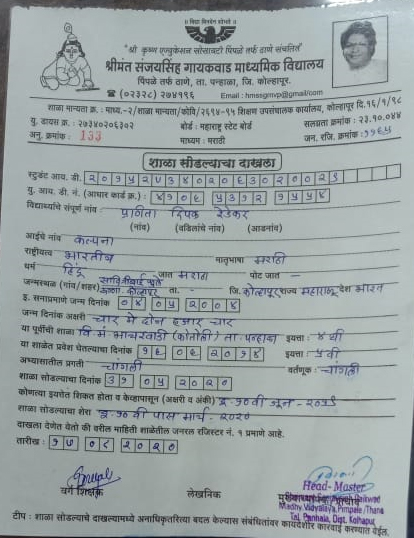 ॥ विद्या विनयेन शोभते ॥
"श्री कृष्ण एज्युकेशन सोसायटी पिंपळे तर्फ ठाणे संचलित"
श्रीमंत संजयसिंह गायकवाड माध्यमिक विद्यालय
पिंपळे तर्फ ठाणे, ता. पन्हाळा, जि. कोल्हापूर.
☎ (०२३२८) २७४१९६ Email : hmssgmvp@gmail.com
शाळा मान्यता क्र. : माध्य.-२/शाळा मान्यता/कोवि/२६९४-९५ शिक्षण उपसंचालक कार्यालय, कोल्हापूर दि.१६/१/९८
यु. डायस क्र. : २७३४०२०६३०२ बोर्ड : महाराष्ट्र स्टेट बोर्ड सलग्नता क्रमांक : २३.१०.०४४
अनु. क्रमांक : 133 माध्यम : मराठी जन. रजि. क्रमांक : ११६५
शाळा सोडल्याचा दाखला
स्टुडंट आय. डी.
यु. आय. डी. नं. (आधार कार्ड क्र.) :
विद्यार्थ्याचे संपूर्ण नाव : प्रणिता दिपक रेडेकर
(नांव) (वडिलांचे नांव) (आडनांव)
आईचे नांव कल्पना
राष्ट्रीयत्व भारतीय मातृभाषा मराठी
धर्म हिंदू जात मराठा पोट जात –
जन्मस्थळ (गांव/शहर) कोल्हापूर ता. – जि. कोल्हापूर राज्य महाराष्ट्र देश भारत
इ. सनाप्रमाणे जन्म दिनांक ०४ ०५ २००४
जन्म दिनांक अक्षरी चार मे दोन हजार चार
या पूर्वीची शाळा वि. मं. (कोतोली) ता. पन्हाळा इयत्ता : ४ थी
या शाळेत प्रवेश घेतल्याचा दिनांक १६ ०६ २०१४ इयत्ता : ५ वी
अभ्यासातील प्रगती चांगली वर्तणूक : चांगली
शाळा सोडल्याचा दिनांक ३१ ०५ २०२०
कोणत्या इयत्तेत शिकत होता व केव्हापासून (अक्षरी व अंकी) इ. १० वी जून - २०१९
शाळा सोडल्याचा शेरा इ. १० वी पास मार्च - २०२०
दाखला देणेत येतो की वरील माहिती शाळेतील जनरल रजिस्टर नं. १ प्रमाणे आहे.
तारीख : १७ ०८ २०२०
वर्ग शिक्षक लेखनिक
Head-Master
Madhy. Vidyalaya, Pimpale /Thane
Tal. Panhala, Dist. Kolhapur
टीप : शाळा सोडल्याचे दाखल्यामध्ये अनाधिकृतरित्या बदल केल्यास संबंधितांवर कायदेशीर कारवाई करण्यात येईल.